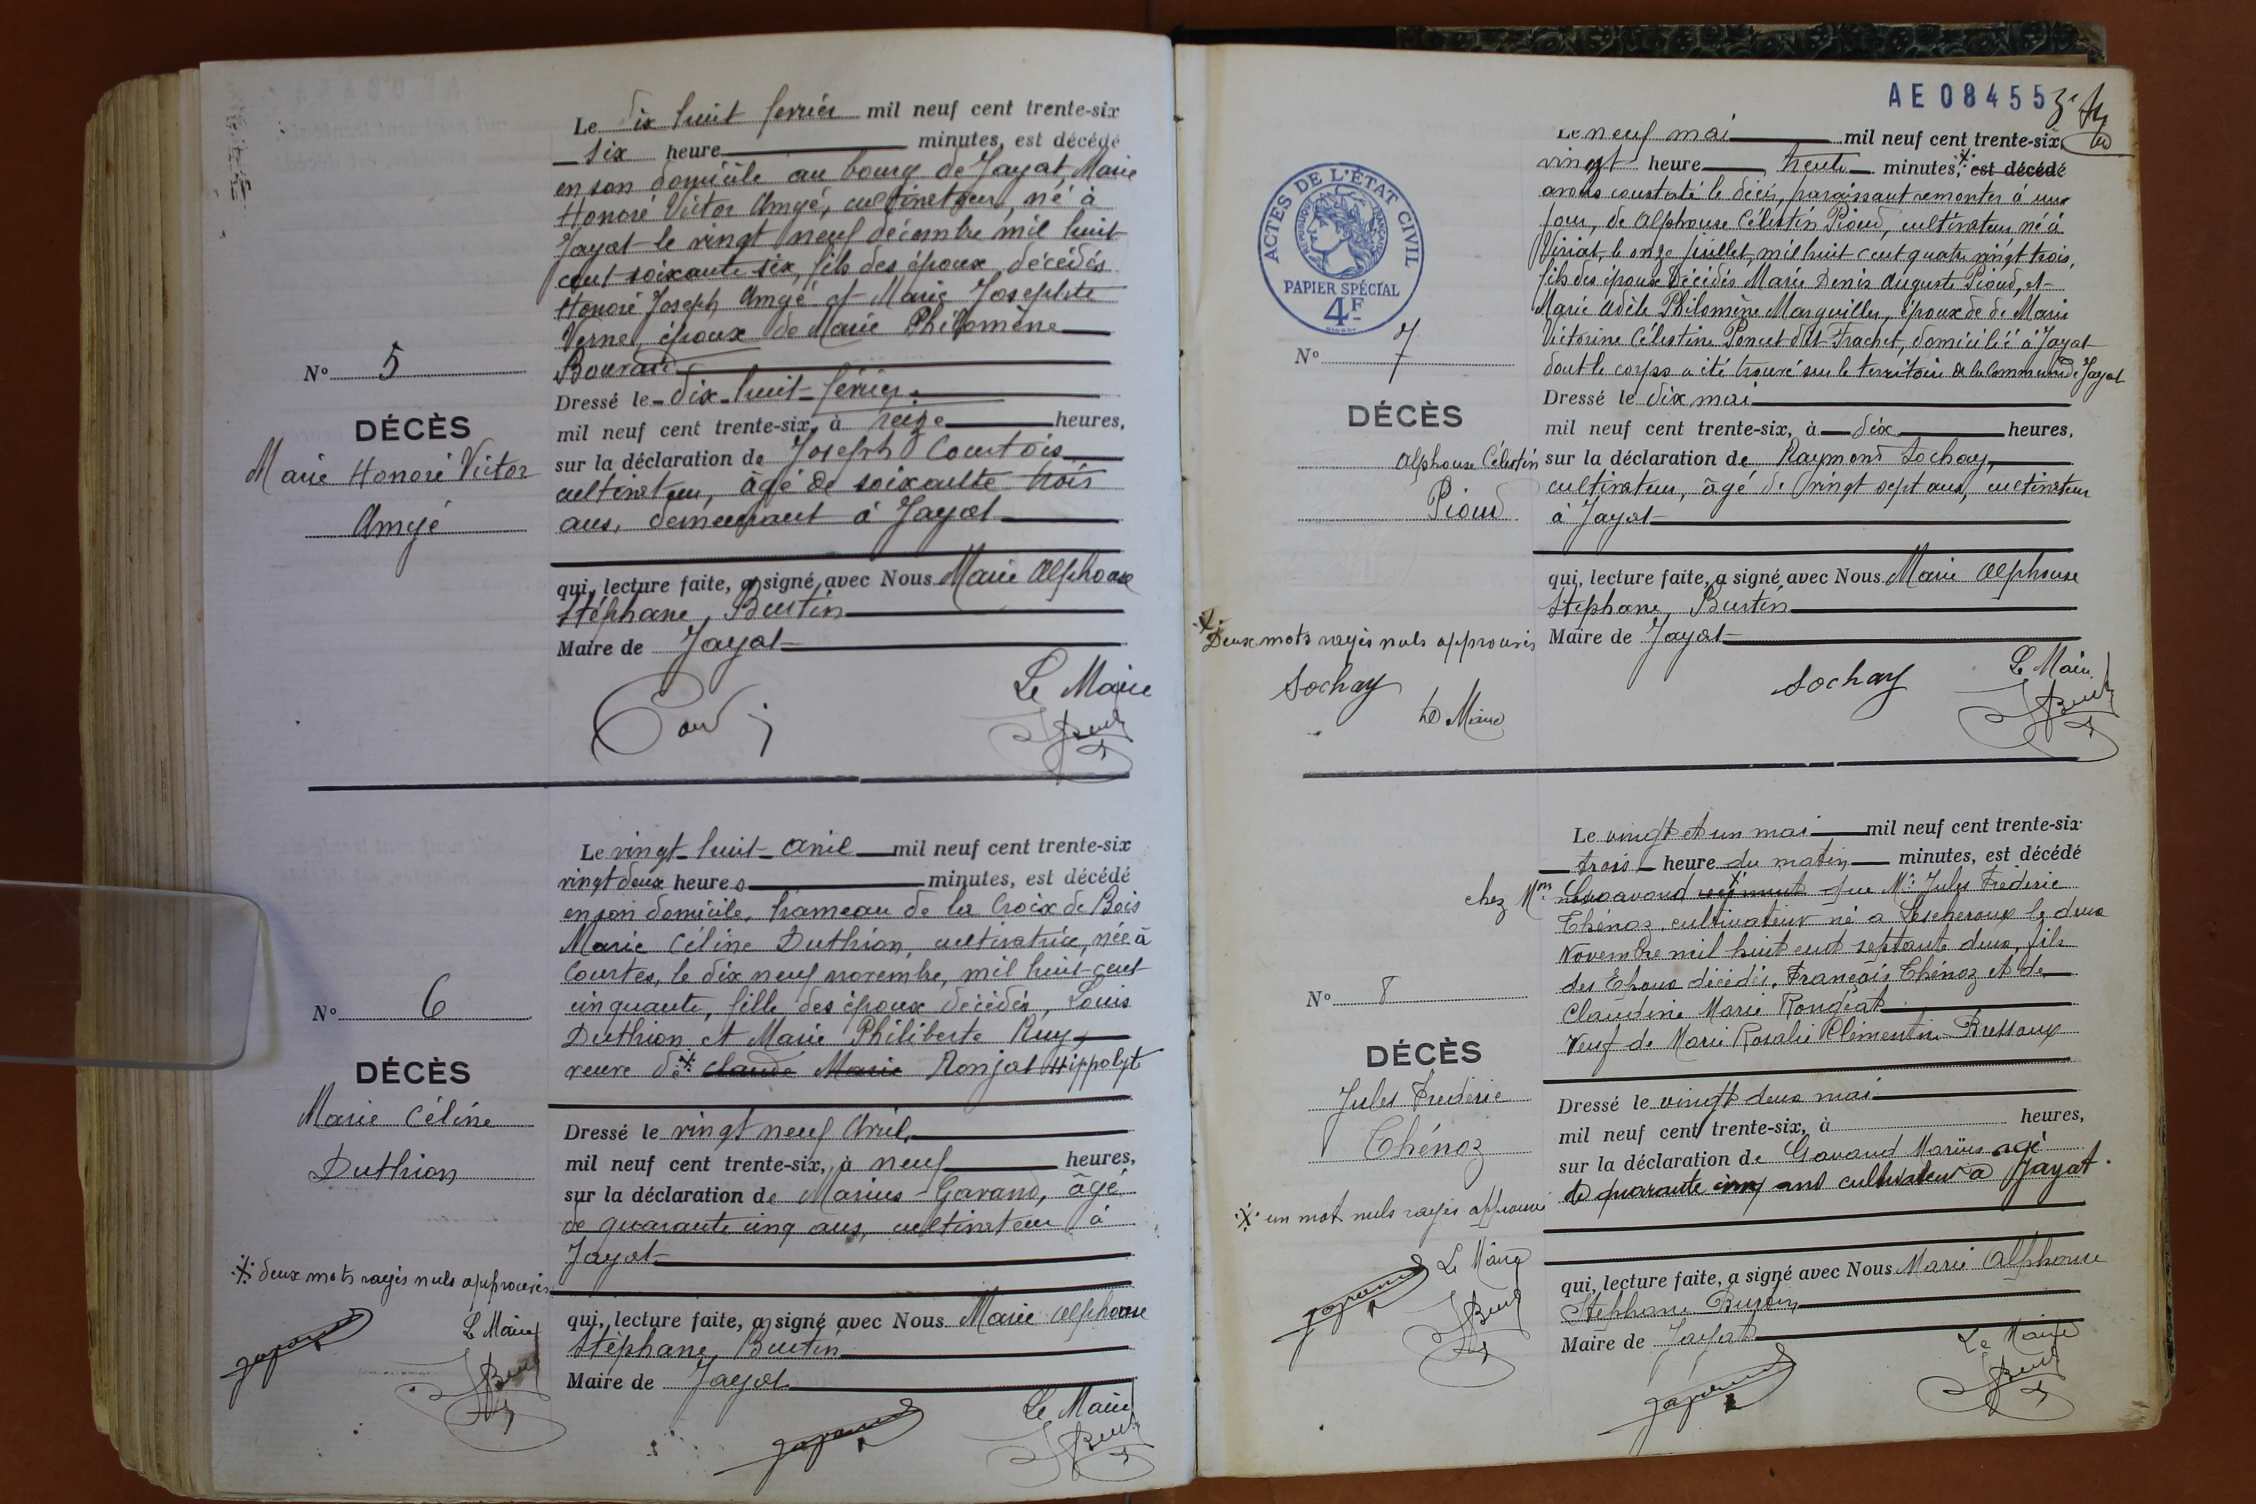 Le dix huit février mil neuf cent trente-six
six heure minutes, est décédé
en son domicile au bourg de Jayat, Marie
Honoré Victor Amyé, cultivateur, né à
Jayat le vingt neuf décembre mil huit
cent soixante six, fils des époux décédés
Honoré Joseph Amyé et Marie Josephte
Verne, époux de Marie Philomène
N° 5
DÉCÈS
Marie Honoré Victor
Amyé
Dressé le dix-huit février
mil neuf cent trente-six, à heures,
sur la déclaration de Joseph Courtois
cultivateur, âgé de soixante trois
ans, demeurant à Jayat
qui, lecture faite, a signé avec Nous Marie Alphonse
Stéphane, Burtin
Maire de Jayat
Le Maire
Le vingt-huit avril mil neuf cent trente-six
vingt deux heures minutes, est décédé
en son domicile, hameau de la Croix de Bois
Marie Céline Duthion, cultivatrice, née à
Courtes, le dix neuf novembre, mil huit cent
cinquante, fille des époux décédés, Louis
Duthion et Marie Philiberte Ruy,
veuve de Claude Marie Ronjat Hippolyt
N° 6
DÉCÈS
Marie Céline
Duthion
Dressé le vingt neuf Avril,
mil neuf cent trente-six, à neuf heures,
sur la déclaration de Marius Gavand, âgé
de quarante cinq ans, cultivateur à
Jayat
deux mots rayés nuls approuvés
Le Maire
qui, lecture faite, a signé avec Nous Marie Alphonse
Stéphane, Burtin
Maire de Jayat
Le Maire
AE 08455
Le neuf mai mil neuf cent trente-six
vingt heure trente minutes, est décédé
avons constaté le décès, paraissant remonter à un
jour, de Alphonse Célestin Pioud, cultivateur né à
Viriat, le onze juillet, mil huit cent quatre vingt trois,
fils des époux décédés Marie Denis Auguste Pioud, et
Marie Adèle Philomène Marguiller, époux de de Marie
Victorine Célestine Poncet dit Frachet, domicilié à Jayat
dont le corps a été trouvé sur le territoire de la Commune de Jayat
ACTES DE L'ÉTAT CIVIL
RÉPUBLIQUE FRANÇAISE
PAPIER SPÉCIAL
4F
N° 7
DÉCÈS
Alphonse Célestin
Pioud
Dressé le dix mai
mil neuf cent trente-six, à dix heures,
sur la déclaration de Raymond Sochay,
cultivateur, âgé de vingt sept ans, cultivateur
à Jayat
qui, lecture faite, a signé avec Nous Marie Alphonse
Stéphane, Burtin
Maire de Jayat
Deux mots rayés nuls approuvés
Sochay
Le Maire
Sochay
Le Maire
Le vingt et un mai mil neuf cent trente-six
trois heure du matin minutes, est décédé
chez Mr Gavand que Mr Jules Frederic
Thénoz, cultivateur né a Lescheroux le deux
Novembre mil huit cent septante deux, fils
des Epoux décédés, François Thénoz et de
Claudine Marie Rongeat
Veuf de Marie Rosalie Clémentine Buffaux
N° 8
DÉCÈS
Jules Frederic
Thénoz
Dressé le vingt deux mai
mil neuf cent trente-six, à heures,
sur la déclaration de Gavand Marius agé
de quarante cinq ans cultivateur a Jayat.
un mot nuls rayés approuvé
Le Maire
qui, lecture faite, a signé avec Nous Marie Alphonse
Stéphane Burtin
Maire de Jayat
Le Maire